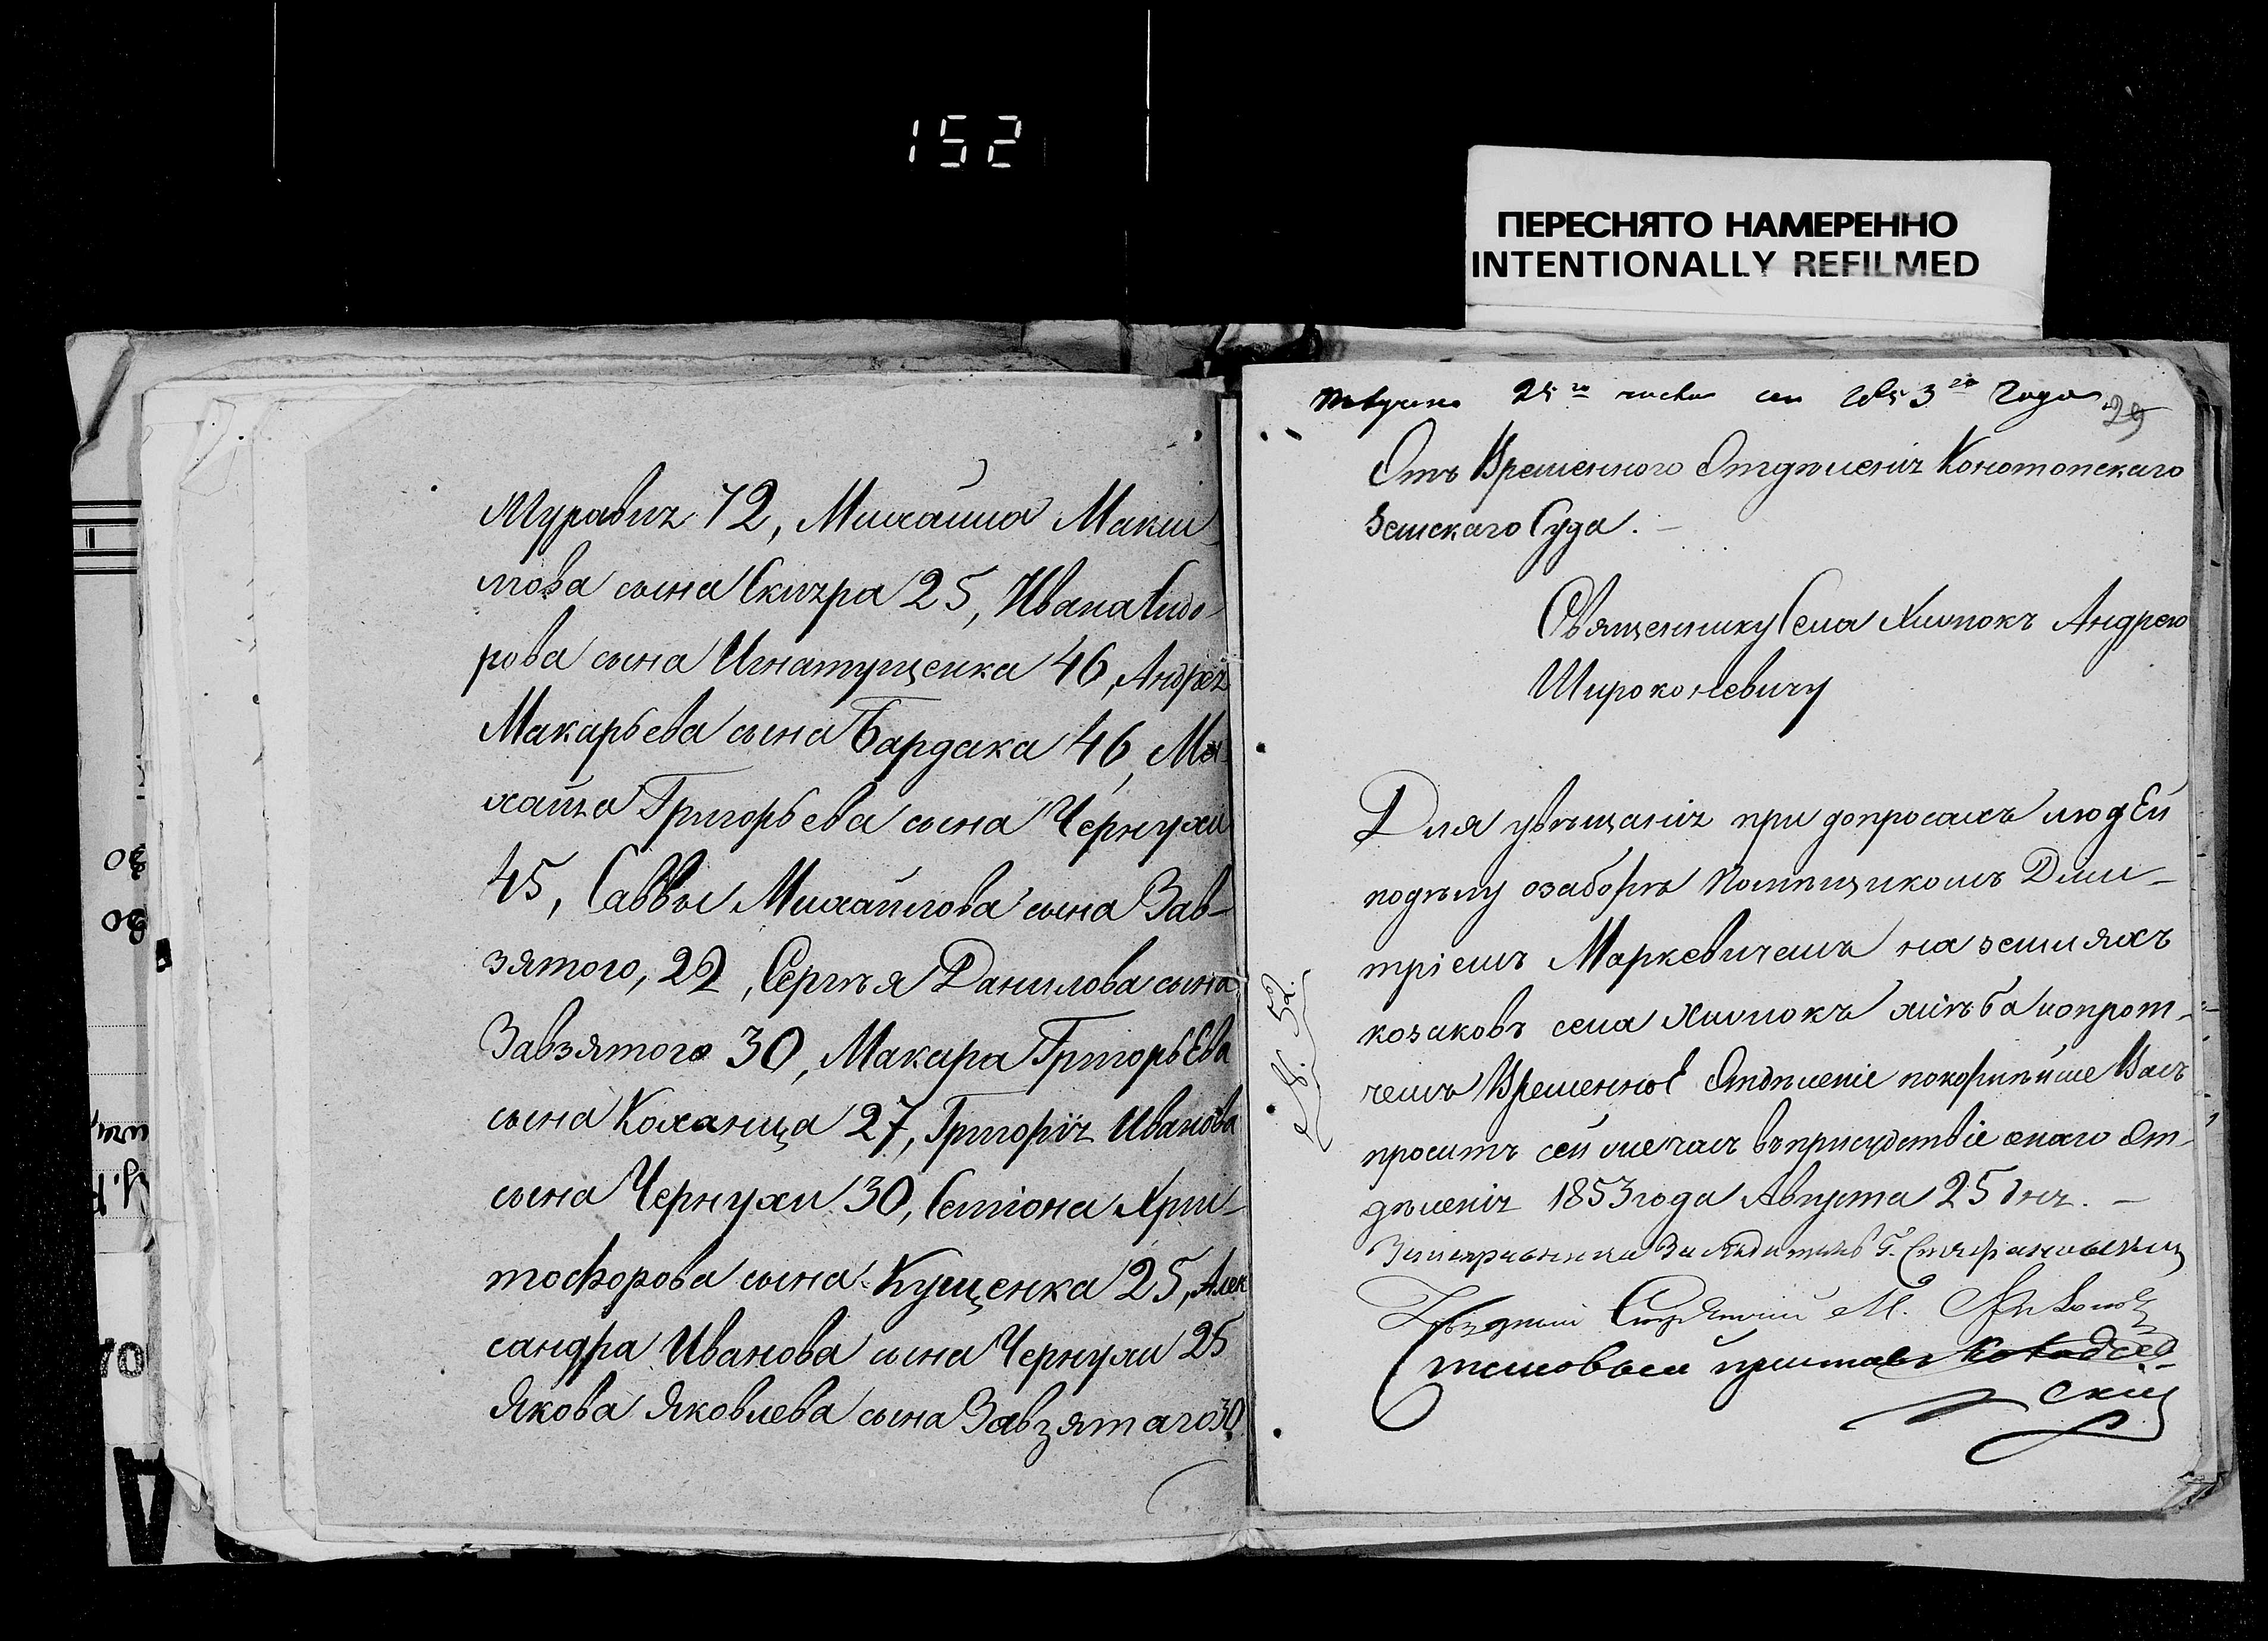 152
ПЕРЕСНЯТО НАМЕРЕННО
INTENTIONALLY REFILMED
Муравия 72, Михайла Макси
мова сына Скляра 25, Ивана Сидо-
рова сына Игнатущенка 46, Андрея
Макарьева сына Бардака 46, Ми
хайла Григорьева сына Чернухи
45, Саввы Михайлова сына Зав-
зятого, 29, Сергѣя Данилова сына
Завзятого 30, Макара Григорьева
сына Коханца 27, Григорія Иванова
сына Чернухи 30, Семіона Хри-
тофорова сына Кущенка 25, Алек
сандра Иванова сына Чернухи 25
Якова Яковлева сына Завзятаго 30.
25 го числа 1853 го года
29
Отъ Временного Отдѣленія Конотопскаго
Земскаго Суда.
Священнику Села Хижокъ Андрею
Широконевичу
Для увѣщанія при допросахъ людей
подѣлу озаборѣ Помѣщикомъ Дми-
тріемъ Маркевичемъ на земляхъ
козаковъ села Хижокъ хлѣба ипрот-
чемъ Временное Отдѣленіе покорнѣйше Васъ
проситъ сей же часъ въприсудствіе онаго От-
дѣленія 1853 года Августа 25 дня.
№. 52.
Уѣздный Стряпчій М.
Становый приставъ
скій